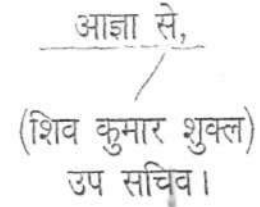 आज्ञा से,
(शिव कुमार शुक्ल)
उप सचिव।